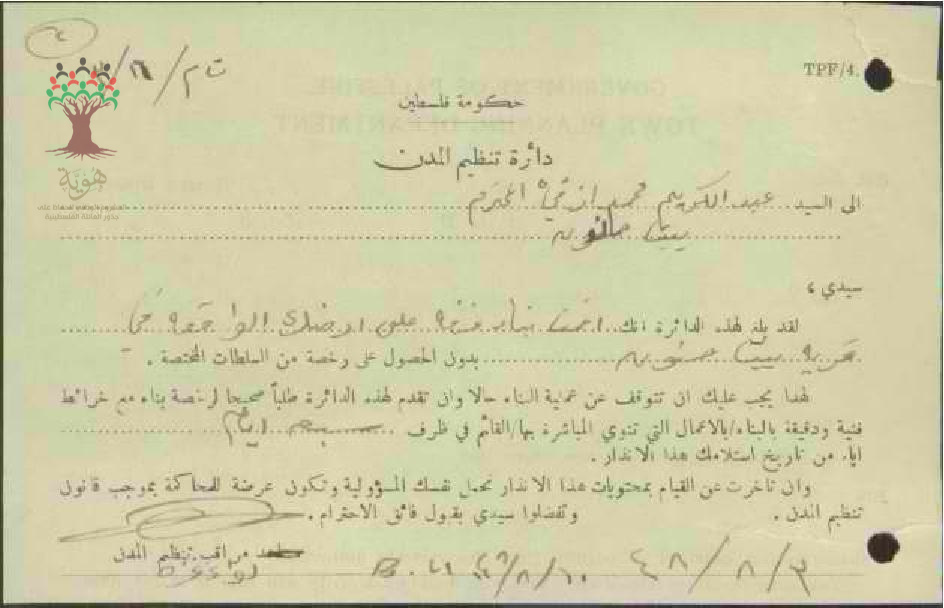 TPF/4.
حكومة فلسطين
دائرة تنظيم المدن
هوية
المشروع الوطني للحفاظ على
جذور العائلة الفلسطينية
الى السيد عبد الكريم محمد المحترم
بيت
سيدي ،
لقد بلغ لهذه الدائرة انك اقمت بناء على ارضك الواقعة في
قرية بيت بدون الحصول على رخصة من السلطات المختصة .
لهذا يجب عليك ان تتوقف عن عملية البناء حالا وان تقدم لهذه الدائرة طلباً صحيحا لرخصة بناء مع خرائط
فنية ودقيقة بالبناء/بالاعمال التي تنوي المباشرة بها/القائم في ظرف سبعة ايام
اياه من تاريخ استلامك هذا الانذار .
وان تاخرت عن القيام بمحتويات هذا الانذار تحمل نفسك المسؤولية وتكون عرضة للمحاكمة بموجب قانون
تنظيم المدن . وتفضلوا سيدي بقبول فائق الاحترام .
مراقب تنظيم المدن